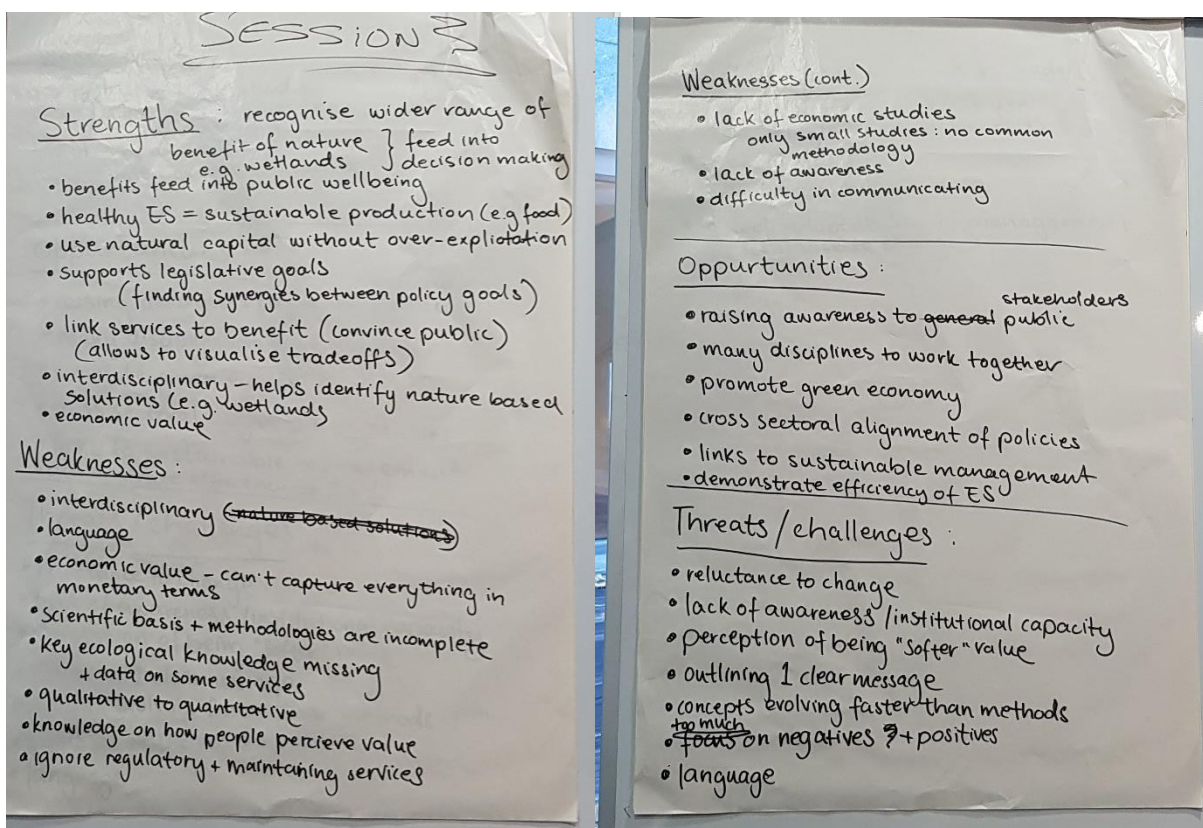 SESSION 3
Strengths : recognise wider range of
benefit of nature } feed into
e.g. wetlands decision making
• benefits feed into public wellbeing
• healthy ES = sustainable production (e.g food)
• use natural capital without over-expliotation
• supports legislative goals
(finding synergies between policy goals)
• link services to benefit (convince public)
(allows to visualise tradeoffs)
• interdisciplinary - helps identify nature based
solutions (e.g. wetlands
• economic value
Weaknesses :
• interdisciplinary (nature based solutions)
• language
• economic value - can't capture everything in
monetary terms
• Scientific basis + methodologies are incomplete
• key ecological knowledge missing
+ data on some services
• qualitative to quantitative
• knowledge on how people percieve value
• ignore regulatory + maintaning services
Weaknesses (cont.)
• lack of economic studies
only small studies : no common
methodology
• lack of awareness
• difficulty in communicating
Oppurtunities :
stakeholders
• raising awareness to general public
• many disciplines to work together
• promote green economy
• cross sectoral alignment of policies
• links to sustainable management
• demonstrate efficiency of ES
Threats/challenges :
• reluctance to change
• lack of awareness /institutional capacity
• perception of being "softer" value
• outlining 1 clear message
• concepts evolving faster than methods
too much
• focus on negatives + positives
• language